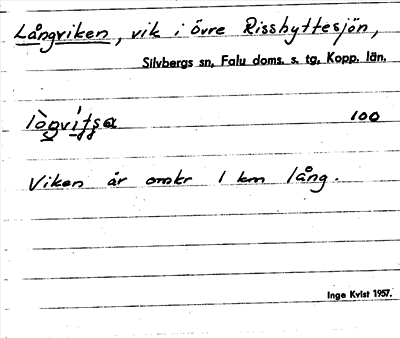 Långviken, vik i övre Risshyttesjön,
Silvbergs sn, Falu doms. s. tg, Kopp. län.
100
Viken är omkr 1 km lång.
Inge Kvist 1957.